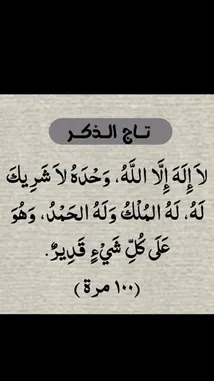 تاج الذكر
لاَ إِلَهَ إِلَّا اللَّهُ، وَحْدَهُ لاَ شَرِيكَ
لَهُ، لَهُ المُلْكُ وَلَهُ الحَمْدُ، وَهُوَ
عَلَى كُلِّ شَيْءٍ قَدِيرٌ.
(١٠٠ مرة)